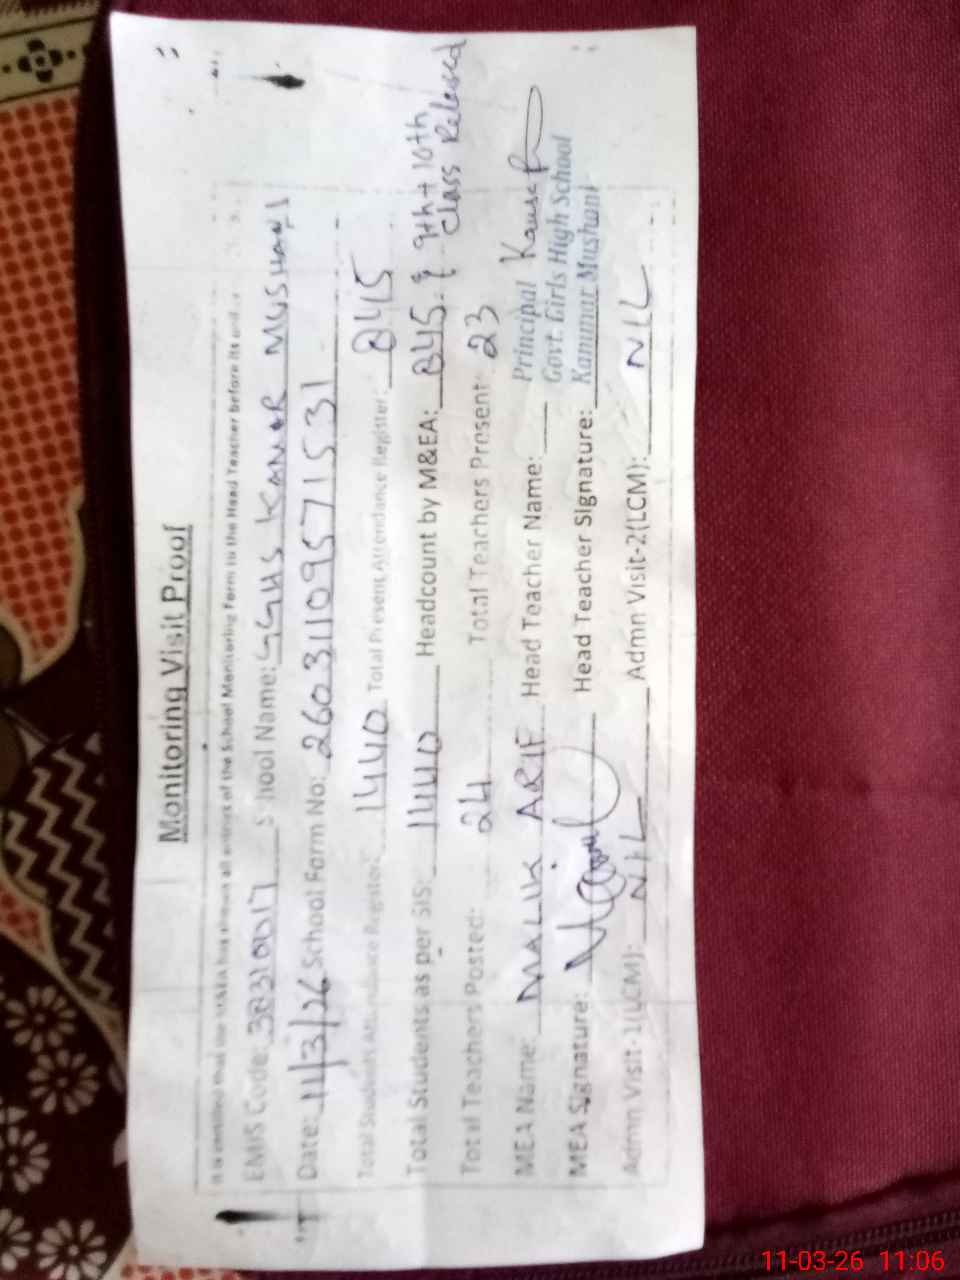 Monitoring Visit Proof
It is certified that the MEA has shown all entries of the School Monitoring Form to the Head Teacher before its
EMIS Code: 38310017 School Name: GGHS KAMAR MUSHANI
Date: 11/3/26 School Form No: 26031109571531
Total Students Attendance Register: 1440 Total Present Attendance Register: 845
Total Students as per SIS: 1440 Headcount by M&EA: 845. { 9th + 10th Class Released
Total Teachers Posted: 24 Total Teachers Present: 23
MEA Name: MALIK ARIF Head Teacher Name:
Principal Kausar
Govt. Girls High School
Kammar Mushani
MEA Signature: Head Teacher Signature:
Admn Visit-1(LCM): NIL Admn Visit-2(LCM): NIL
11-03-26 11:06